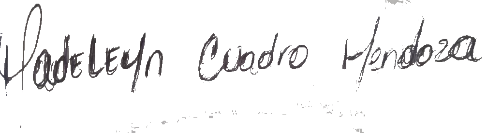 Madeleyn Cuadro Mendoza